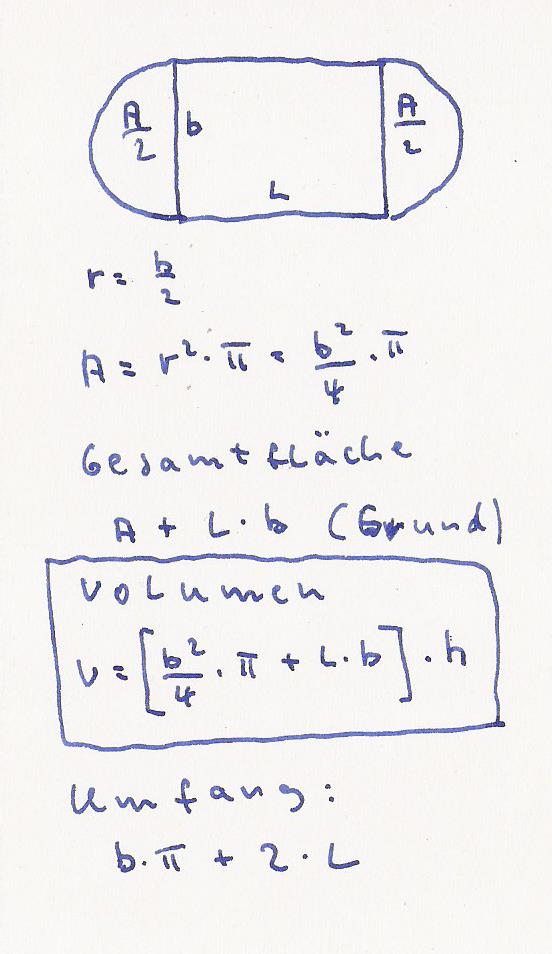 A/2 b A/2
L
r = b/2
A = r² · π = b²/4 · π
Gesamtfläche
A + L · b (Grund)
Volumen
V = [b²/4 · π + L · b] · h
Umfang:
b · π + 2 · L